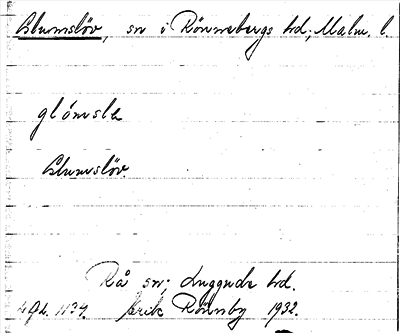 Glumslöv, sn i Rönnebergs hd; Malm. l.
glómsla
Glumslöv
Rå sn; Luggude hd.
1134. Erik Rönnby 1932.